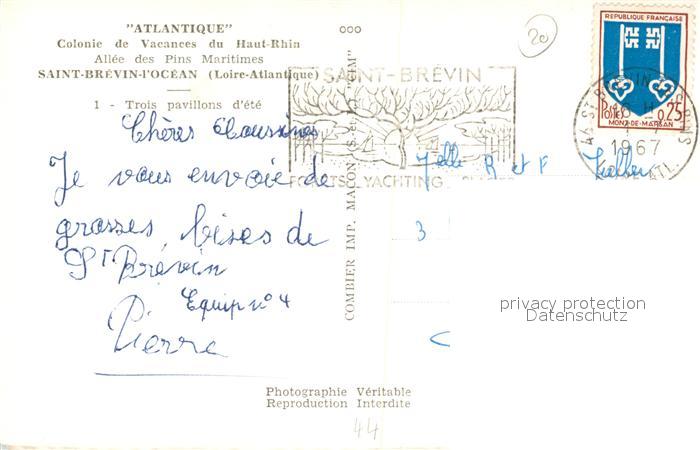 "ATLANTIQUE"
Colonie de Vacances du Haut-Rhin
Allée des Pins Maritimes
SAINT-BRÉVIN-l'OCÉAN (Loire-Atlantique)
1 - Trois pavillons d'été
Chères Cousines
Je vous envoie de
grosses bises de
St Brévin
Equip n° 4
Pierre
COMBIER IMP. MACON (S.-et-L.) "CIM"
20
SAINT-BRÉVIN
YACHTING
REPUBLIQUE FRANÇAISE
Postes 0,25
MONT-DE-MARSAN
1967
R et F
3
privacy protection
Datenschutz
Photographie Véritable
Reproduction Interdite
44